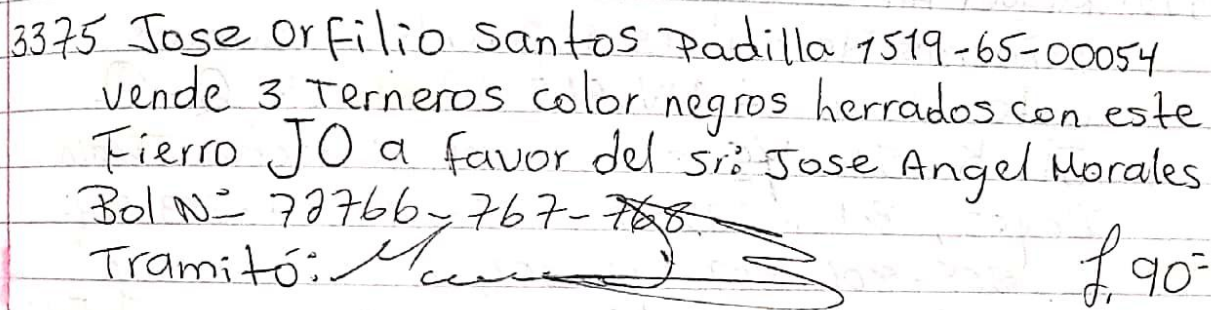 3375 Jose Orfilio Santos Padilla 1519-65-00054
vende 3 Terneros color negros herrados con este
Fierro JO a favor del sr: Jose Angel Morales
Bol Nº 72766-767-768.
Tramitó:
L. 90=